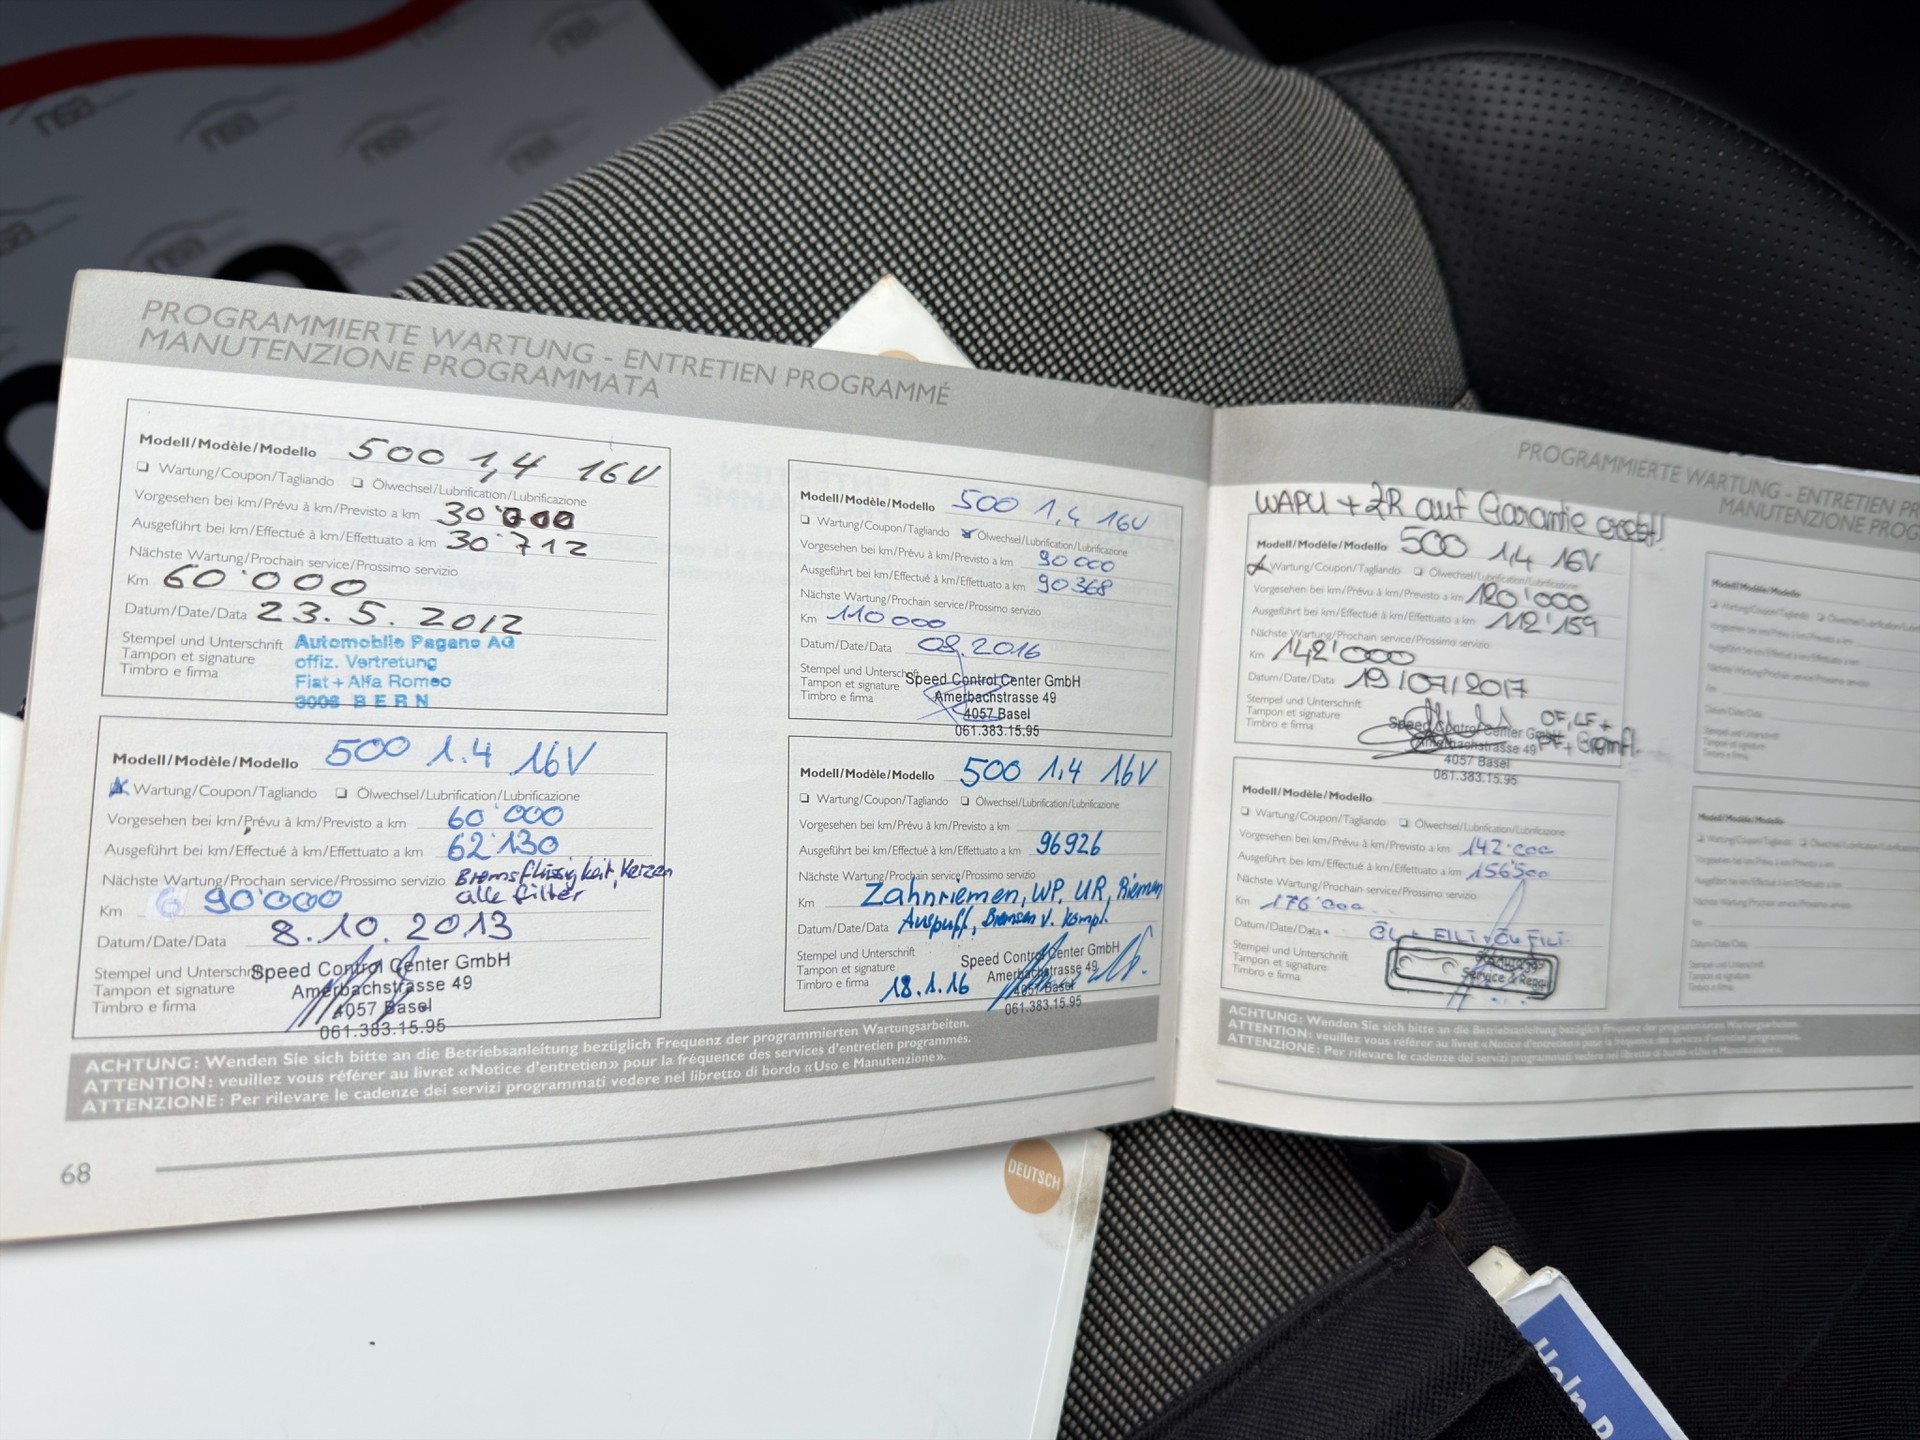 nsa
nsa
nsa
nsa
nsa
nsa
PROGRAMMIERTE WARTUNG - ENTRETIEN PROGRAMMÉ
MANUTENZIONE PROGRAMMATA
Modell/Modèle/Modello 500 1,4 16V
Wartung/Coupon/Tagliando Ölwechsel/Lubrification/Lubrificazione
Vorgesehen bei km/Prévu à km/Previsto a km 30'000
Ausgeführt bei km/Effectué à km/Effettuato a km 30'712
Nächste Wartung/Prochain service/Prossimo servizio
Km 60'000
Datum/Date/Data 23.5.2012
Stempel und Unterschrift Automobile Pagano AG
Tampon et signature offiz. Vertretung
Timbro e firma Fiat + Alfa Romeo
3008 BERN
Modell/Modèle/Modello 500 1.4 16V
Wartung/Coupon/Tagliando Ölwechsel/Lubrification/Lubrificazione
Vorgesehen bei km/Prévu à km/Previsto a km 60'000
Ausgeführt bei km/Effectué à km/Effettuato a km 62'130
Nächste Wartung/Prochain service/Prossimo servizio Bremsflüssigkeit, Kerzen
Km 90'000 alle Filter
Datum/Date/Data 8.10.2013
Stempel und Unterschrift Speed Control Center GmbH
Tampon et signature Amerbachstrasse 49
Timbro e firma 4057 Basel
061.383.15.95
Modell/Modèle/Modello 500 1,4 16V
Wartung/Coupon/Tagliando Ölwechsel/Lubrification/Lubrificazione
Vorgesehen bei km/Prévu à km/Previsto a km 90000
Ausgeführt bei km/Effectué à km/Effettuato a km 90368
Nächste Wartung/Prochain service/Prossimo servizio
Km 110000
Datum/Date/Data 08.2016
Stempel und Unterschrift Speed Control Center GmbH
Tampon et signature Amerbachstrasse 49
Timbro e firma 4057 Basel
061.383.15.95
Modell/Modèle/Modello 500 1,4 16V
Wartung/Coupon/Tagliando Ölwechsel/Lubrification/Lubrificazione
Vorgesehen bei km/Prévu à km/Previsto a km
Ausgeführt bei km/Effectué à km/Effettuato a km 96926
Nächste Wartung/Prochain service/Prossimo servizio
Km Zahnriemen, WP, UR, Riemen
Datum/Date/Data Auspuff, Bremsen v. kompl.
Stempel und Unterschrift Speed Control Center GmbH
Tampon et signature Amerbachstrasse 49
Timbro e firma 18.1.16 4057 Basel
061.383.15.95
ACHTUNG: Wenden Sie sich bitte an die Betriebsanleitung bezüglich Frequenz der programmierten Wartungsarbeiten.
ATTENTION: veuillez vous référer au livret «Notice d'entretien» pour la fréquence des services d'entretien programmés.
ATTENZIONE: Per rilevare le cadenze dei servizi programmati vedere nel libretto di bordo «Uso e Manutenzione».
68
PROGRAMMIERTE WARTUNG - ENTRETIEN PR
MANUTENZIONE PROG
WAPU + ZR auf Garantie ersetzt!
Modell/Modèle/Modello 500 1,4 16V
Wartung/Coupon/Tagliando Ölwechsel/Lubrification/Lubrificazione
Vorgesehen bei km/Prévu à km/Previsto a km 120'000
Ausgeführt bei km/Effectué à km/Effettuato a km 112'159
Nächste Wartung/Prochain service/Prossimo servizio
Km 142'000
Datum/Date/Data 19/07/2017
Stempel und Unterschrift OF, LF +
Tampon et signature Speed Control Center GmbH + Bremfl.
Timbro e firma Amerbachstrasse 49
4057 Basel
061.383.15.95
Modell/Modèle/Modello
Wartung/Coupon/Tagliando Ölwechsel/Lubrification/Lubrificazione
Vorgesehen bei km/Prévu à km/Previsto a km 142'000
Ausgeführt bei km/Effectué à km/Effettuato a km 156500
Nächste Wartung/Prochain service/Prossimo servizio
Km 176'000
Datum/Date/Data
Stempel und Unterschrift
Tampon et signature Service & Repai
Timbro e firma
ACHTUNG: Wenden Sie sich bitte an die Betriebsanleitung bezüglich Frequenz der programmierten Wartungsarbeiten.
ATTENTION: veuillez vous référer au livret «Notice d'entretien» pour la fréquence des services d'entretien programmés.
ATTENZIONE: Per rilevare le cadenze dei servizi programmati vedere nel libretto di bordo «Uso e Manutenzione».
Modell/Modèle/Modello
Modell/Modèle/Modello
DEUTSCH
Help